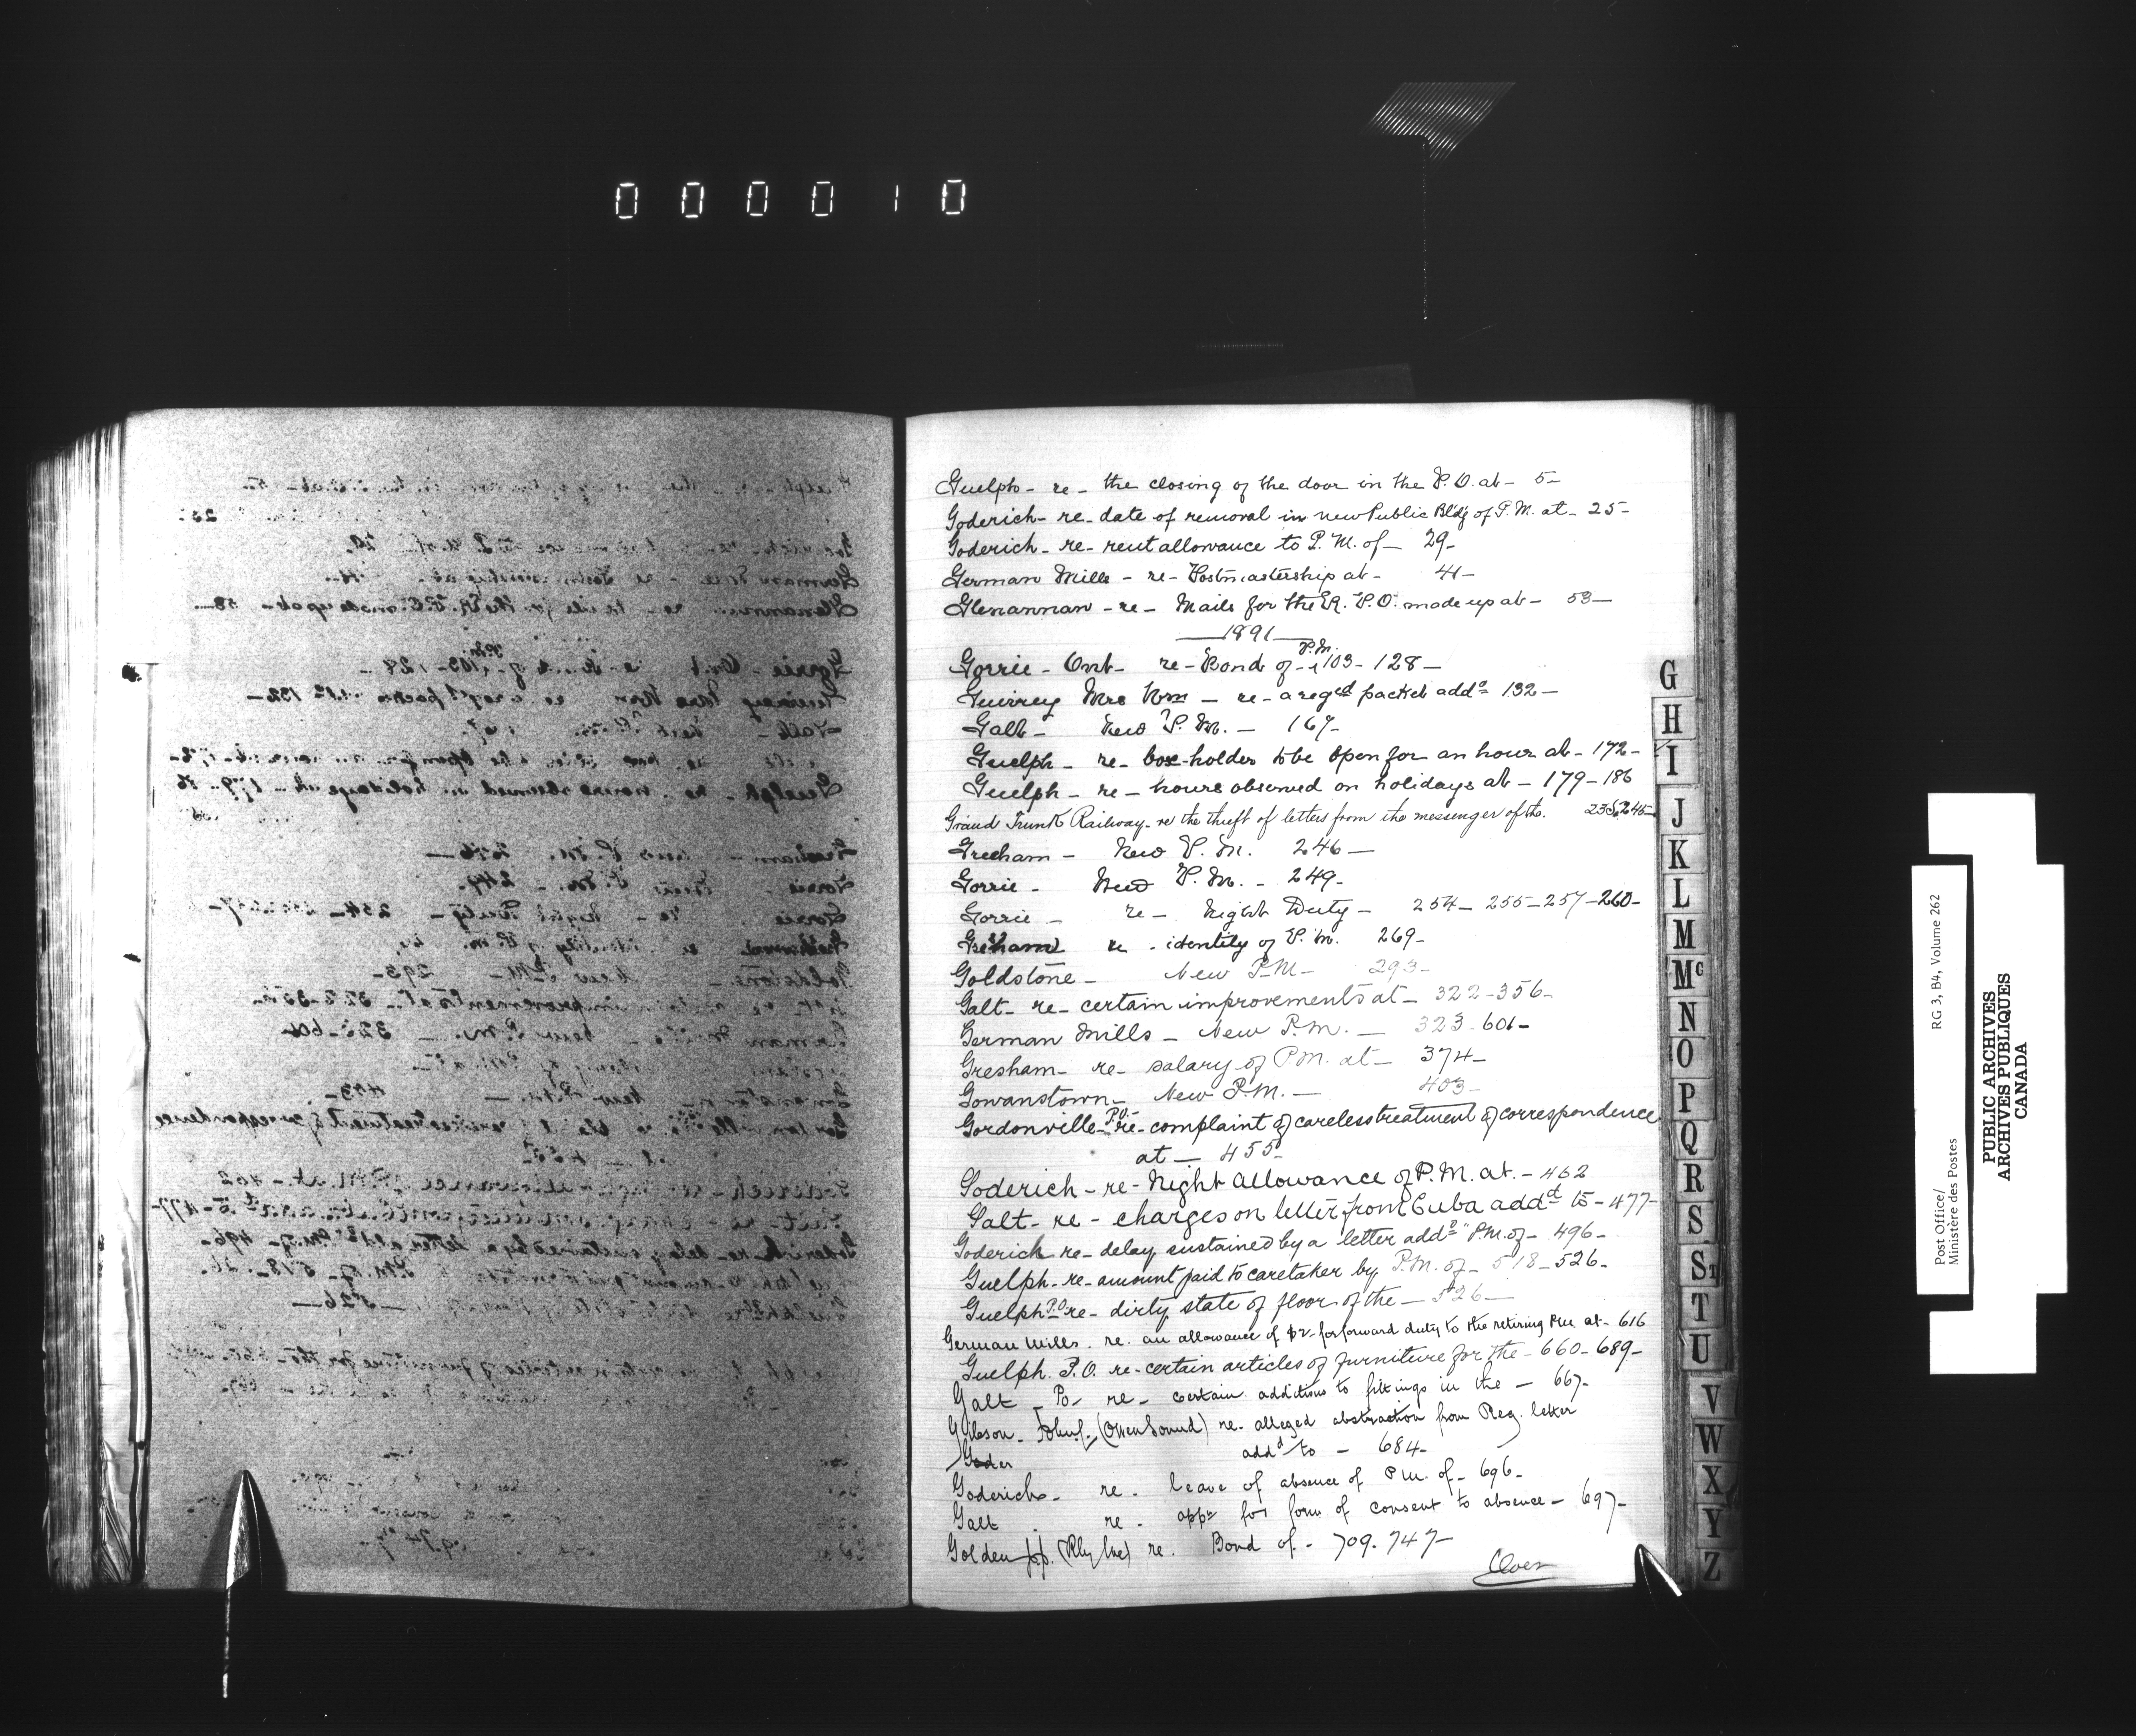 000010
Guelph - re - the closing of the door in the P.O. at - 5 -
Goderich - re - date of removal in new Public Bldg of P.M. at - 25 -
Goderich - re - rent allowance to P.M. of - 29 -
German Mills - re - Postmastership at - 41 -
Glenannan - re - Mails for the P.O. made up at - 53 -
1891
Gorrie - Ont - re - Bond of P.M. - 103 - 128 -
Mrs Wm - re - a regd packet addd 132 -
Galt - New P.M. - 167 -
Guelph - re - box-holder to be open for an hour at - 172 -
Guelph - re - hours observed on holidays at - 179 - 186
Grand Trunk Railway - re the theft of letters from the messenger of the. 235 & 245 -
Gresham - New P.M. 246 -
Gorrie - New P.M. - 249 -
Gorrie - re - Night Duty - 254 - 255 - 257 - 260 -
Gresham re - identity of P.M. 269 -
Goldstone - New P.M - 293 -
Galt - re - certain improvements at - 322 - 356 -
German Mills - New P.M. - 323 - 601 -
Gresham - re - salary of P.M. at - 374 -
Gowanstown - New P.M. - 403 -
Gordonville P.O. - re - complaint of careless treatment of correspondence
at - 455 -
Goderich - re - Night Allowance of P.M. at. - 462
Galt - re - charges on letter from Cuba addd to - 477 -
Goderich re - delay sustained by a letter addd " P.M. of - 496 -
Guelph - re - amount paid to caretaker by P.M. of - 518 - 526 -
Guelph P.O. re - dirty state of floor of the - 526 -
German Mills. re. an allowance of $2 - for forward duty to the retiring P.M. at - 616
Guelph. P.O. re - certain articles of furniture for the - 660 - 689 -
Galt - Po - re - certain additions to fittings in the - 667 -
Gibson - (Owen Sound) re - alleged abstraction from Reg. letter
Goder addd to - 684 -
Goderich - re - leave of absence of P.M. of - 696 -
Galt - re - appn for form of consent to absence - 697 -
Golden (Rly) re. Bond of - 709. 747 -
Over
G
H
I
J
K
L
M
Mc
N
O
P
Q
R
S
St
T
U
V
W
X
Y
Z
Post Office/
Ministère des Postes
RG 3, B4, Volume 262
PUBLIC ARCHIVES
ARCHIVES PUBLIQUES
CANADA